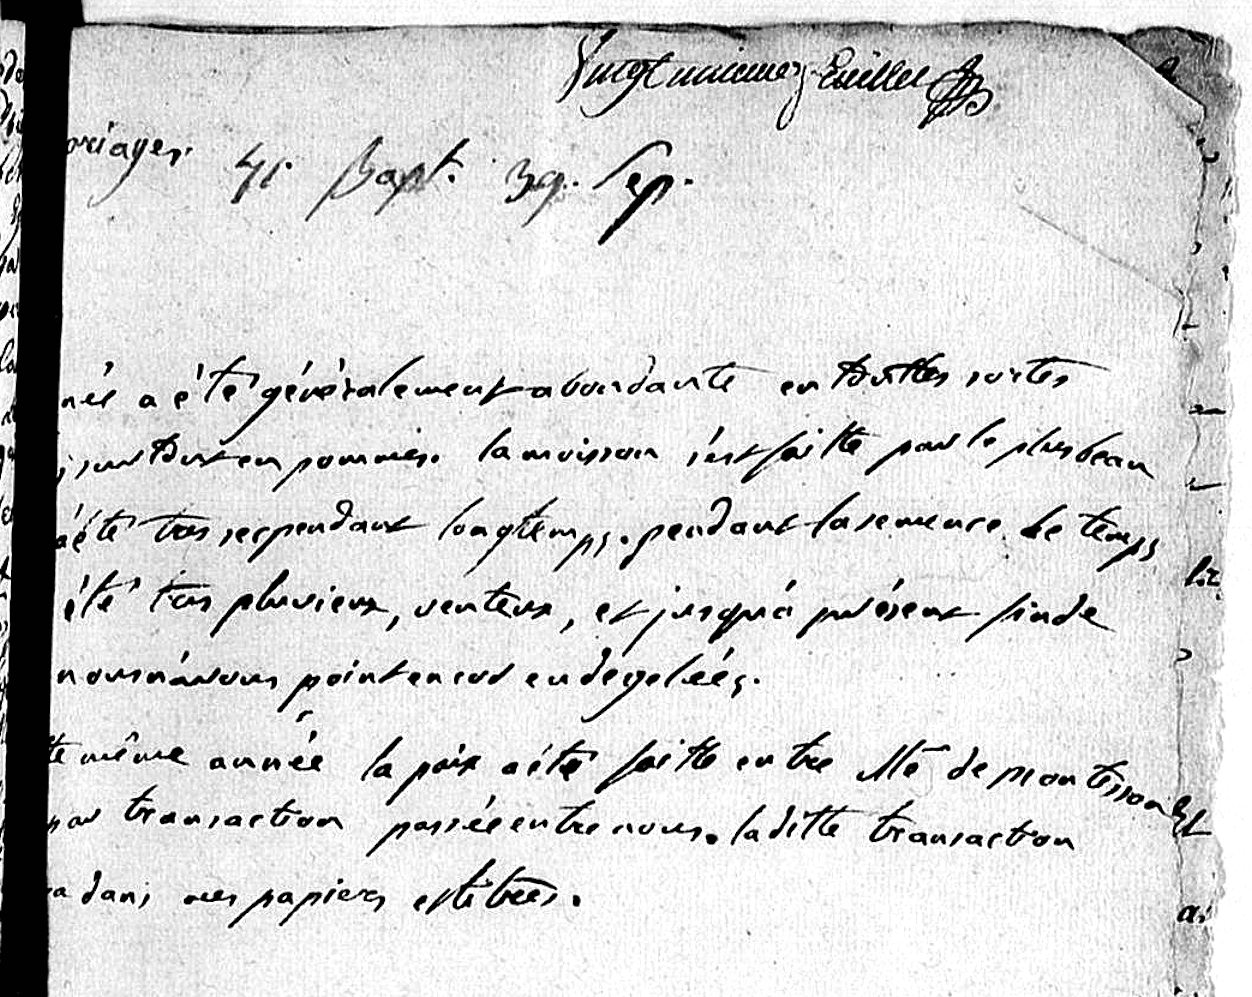 Vingt unieme feuillet
ariages. 41. Bapt. 39. Sep.
née a été généralement abondante en touttes sortes
surtout en pommes. la moisson s'est faitte par le plus beau
a été tres sec pendant longtemps. pendant la semence le temps
été tres pluvieux, venteux, et jusqu'à présent fin de
nous n'avons point encor eu de gelées.
te même année la paix a été faitte entre Mr de montisson et
par transaction passée entre nous. la ditte transaction
ra dans mes papiers et titres.